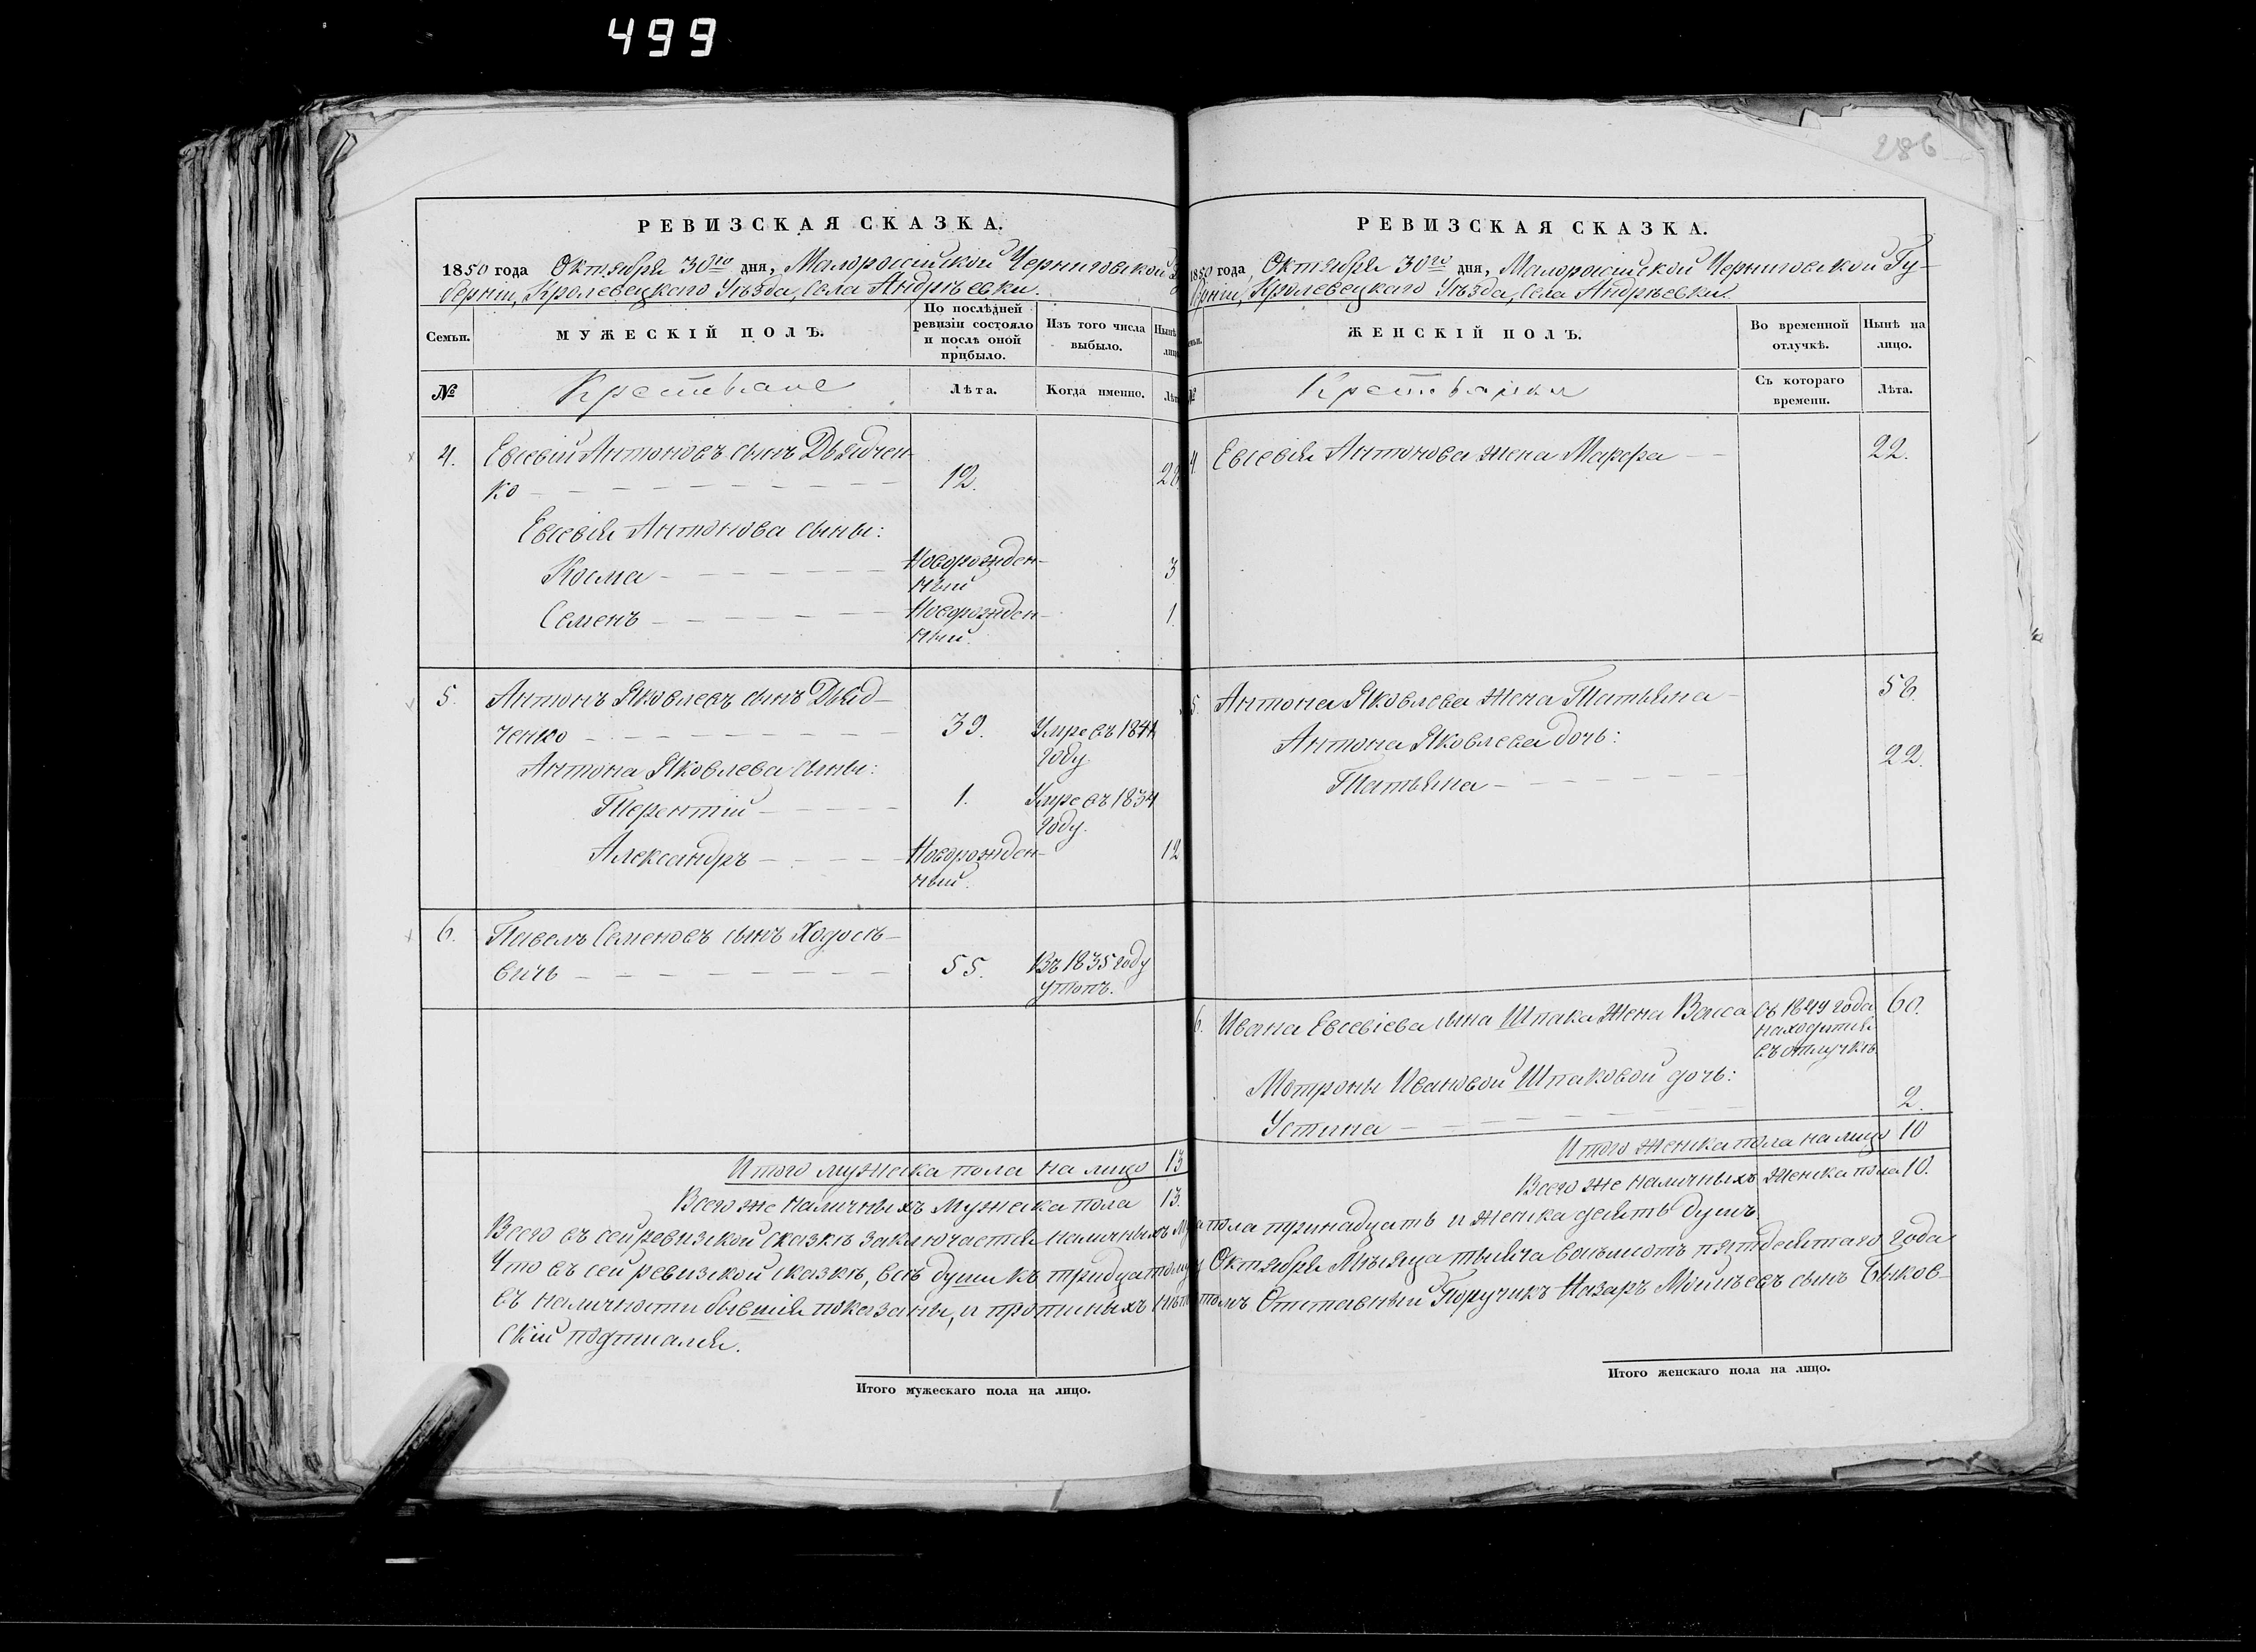 499
286
РЕВИЗСКАЯ СКАЗКА.
1850 года Октября 30го дня, Малоросійской Черниговской Гу
берніи, Кролевецкаго Уѣзда, Села Андрѣевки.
Семьи.
МУЖЕСКІЙ ПОЛЪ.
По послѣдней ревизіи состояло и послѣ оной прибыло.
Изъ того числа выбыло.
Нынѣ
лицо
№
Крестьяне
Лѣта.
Когда именно.
Лѣта
4. Евсевій Антоновъ сынъ Дьядчен-
ко 12. 28
Евсевія Антонова сыны:
Косма Новорожден-
ный 3
Семенъ Новорожден-
ный. 1.
5. Антонъ Яковлевъ сынъ Дьяд-
ченко 39. Умре въ 1841
году.
Антона Яковлева сыны:
Терентій 1. Умре въ 1834
году.
Александръ Новорожден-
ный. 12
6. Павелъ Семеновъ сынъ Ходосѣ-
вичь 55. Въ 1835 году
утопъ.
Итого мужеска пола на лицо 13
Всего же наличныхъ мужеска пола 13.
РЕВИЗСКАЯ СКАЗКА.
1850 года Октября 30го дня, Малоросійской Черниговской Гу-
берніи, Кролевецкаго Уѣзда, Села Андрѣевки.
ЖЕНСКІЙ ПОЛЪ.
Во временной отлучкѣ.
Нынѣ на лицо.
№
Крестьянки
Съ котораго времени.
Лѣта.
4 Евсевія Антонова жена Марфа 22.
5. Антона Яковлева жена Татьяна 56.
Антона Яковлева дочь:
Татьяна 22.
6. Ивана Евсевіева сына Шпака жена Васса Съ 1849 года 60.
находится
въ отлучкѣ.
Мотроны Ивановой Шпаковой дочь:
Устина 2.
Итого женска пола на лицо 10
Всего же наличныхъ женска пола 10.
Всего въ сей ревизской сказкѣ заключается наличныхъ муж пола тринадцать и женска десять душъ.
Что въ сей ревизской сказкѣ, всѣ души къ тридцатому Октября Мѣсяца тысяча восемсотъ пятдесятаго года
въ наличности бывшія показаны, и прописныхъ нѣтъ томъ Отставный Поручикъ Назаръ Моисѣевъ сынъ Быков-
скій подписался.
Итого мужескаго пола на лицо.
Итого женскаго пола на лицо.